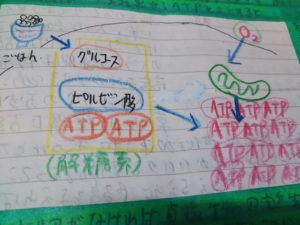 ごはん
グルコース
ピルビン酸
ATP ATP
(解糖系)
O₂
ATP ATP ATP
ATP ATP ATP
ATP ATP ATP
ATP ATP ATP